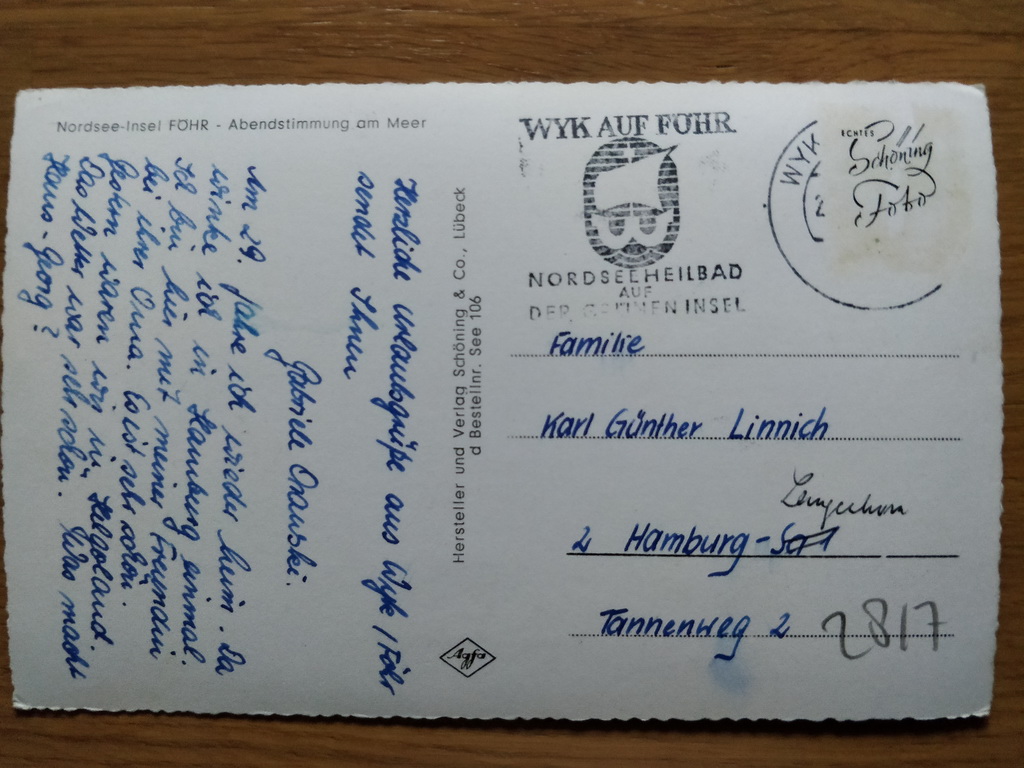 Nordsee-Insel FÖHR - Abendstimmung am Meer
Herzliche Urlaubsgrüße aus Wyk / Föhr
sendet Ihnen
Gabriele Oranski.
Am 29. fahre ich wieder heim. Da
winke ich in Hamburg einmal.
Ich bin hier mit meiner Freundin
bei ihrer Oma. Es ist sehr schön.
Gestern waren wir in Helgoland.
Das Wetter war sehr schön. Was macht
Hans-Georg?
Hersteller und Verlag Schöning & Co., Lübeck
d Bestellnr. See 106
Agfa
WYK AUF FÖHR
NORDSEEHEILBAD
AUF
DER GRÜNEN INSEL
HAM
2
ECHTES
Schöning
Foto
Familie
Karl Günther Linnich
2 Hamburg-
Tannenweg 2
2817